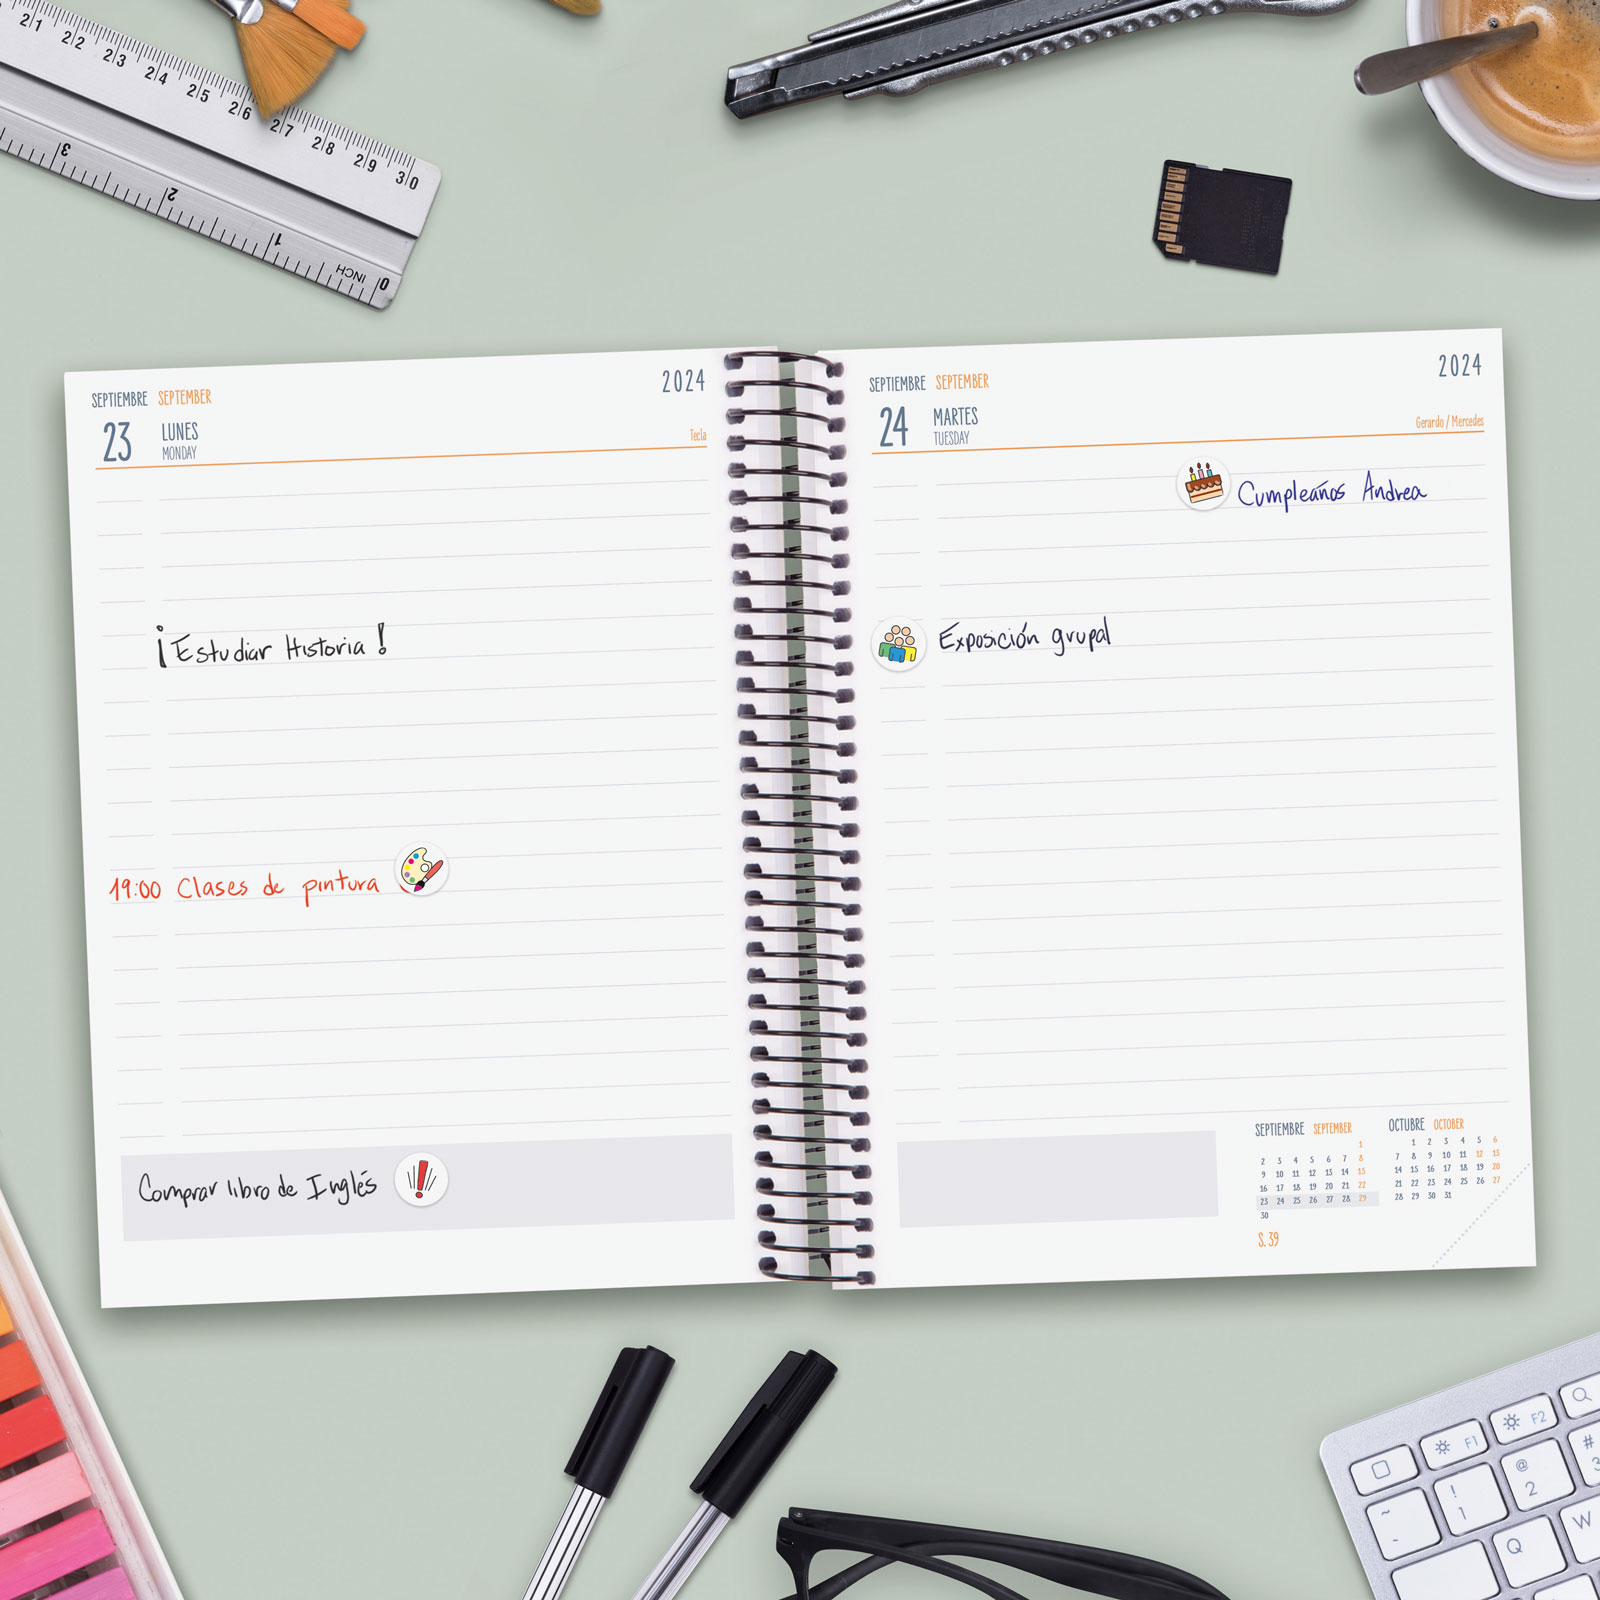 21 22 23 24 25 26 27 28 29 30
3 2 1 0
INCH
SEPTIEMBRE SEPTEMBER 2024
23 LUNES
MONDAY
Tecla
¡Estudiar Historia!
19:00 Clases de pintura
Comprar libro de Inglés
SEPTIEMBRE SEPTEMBER 2024
24 MARTES
TUESDAY
Gerardo / Mercedes
Cumpleaños Andrea
Exposición grupal
SEPTIEMBRE SEPTEMBER
1
2 3 4 5 6 7 8
9 10 11 12 13 14 15
16 17 18 19 20 21 22
23 24 25 26 27 28 29
30
S. 39
OCTUBRE OCTOBER
1 2 3 4 5 6
7 8 9 10 11 12 13
14 15 16 17 18 19 20
21 22 23 24 25 26 27
28 29 30 31
F1 F2
~ ! @ #
- 1 2 3
Q W